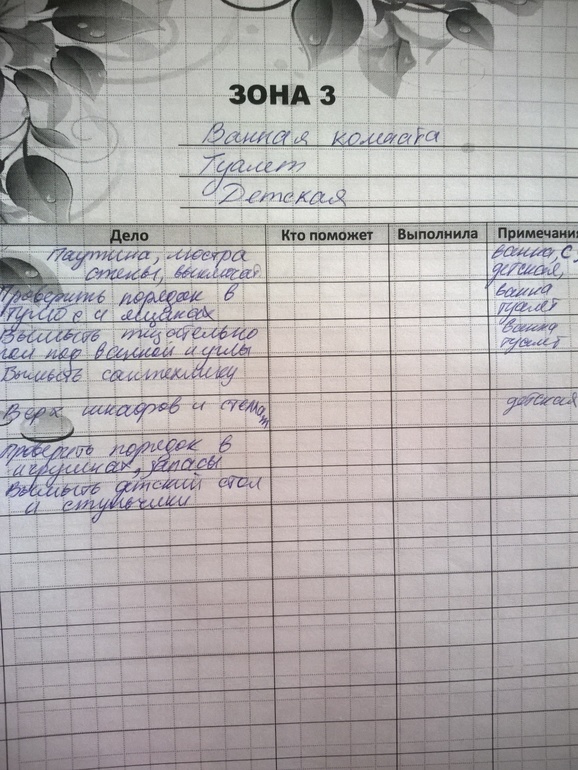 ЗОНА 3
Ванная комната
Туалет
Детская
Дело Кто поможет Выполнила Примечания
Паутина, люстра ванна, с
стены, выключат детская,
Проверить порядок в ванна
тумбе и ящиках туалет
Вымыть тщательно ванна
пол под ванной и углы туалет
Вымыть сантехнику
Верх шкафов и стеллаж детская
Проверить порядок в
игрушках, запасы
Вымыть детский стол
и стульчики